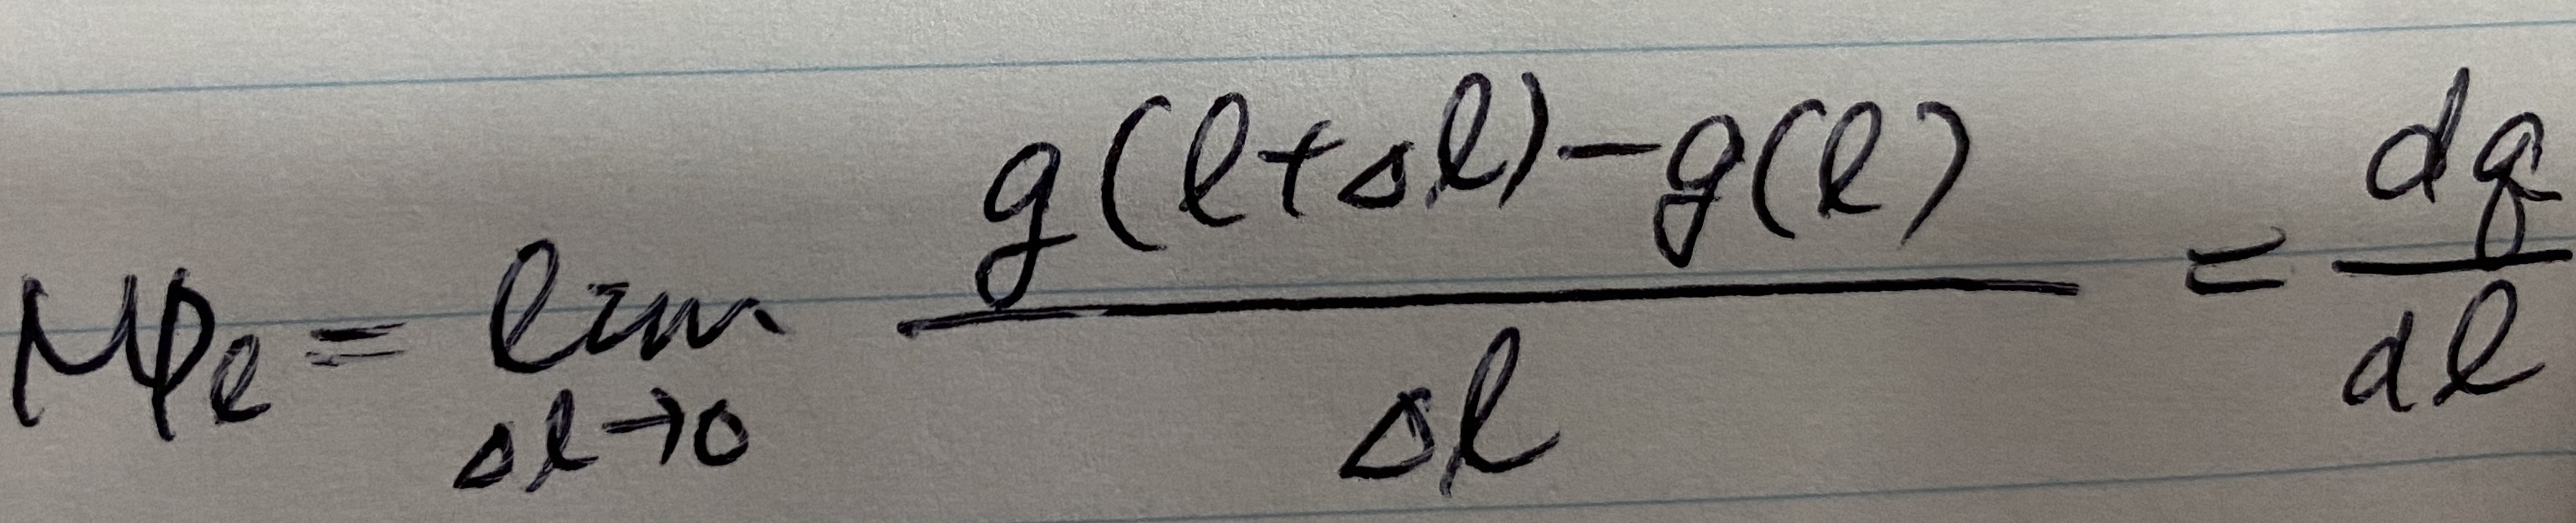 MPℓ = lim Δℓ→0 g(ℓ+Δℓ)−g(ℓ) / Δℓ = dq / dℓ